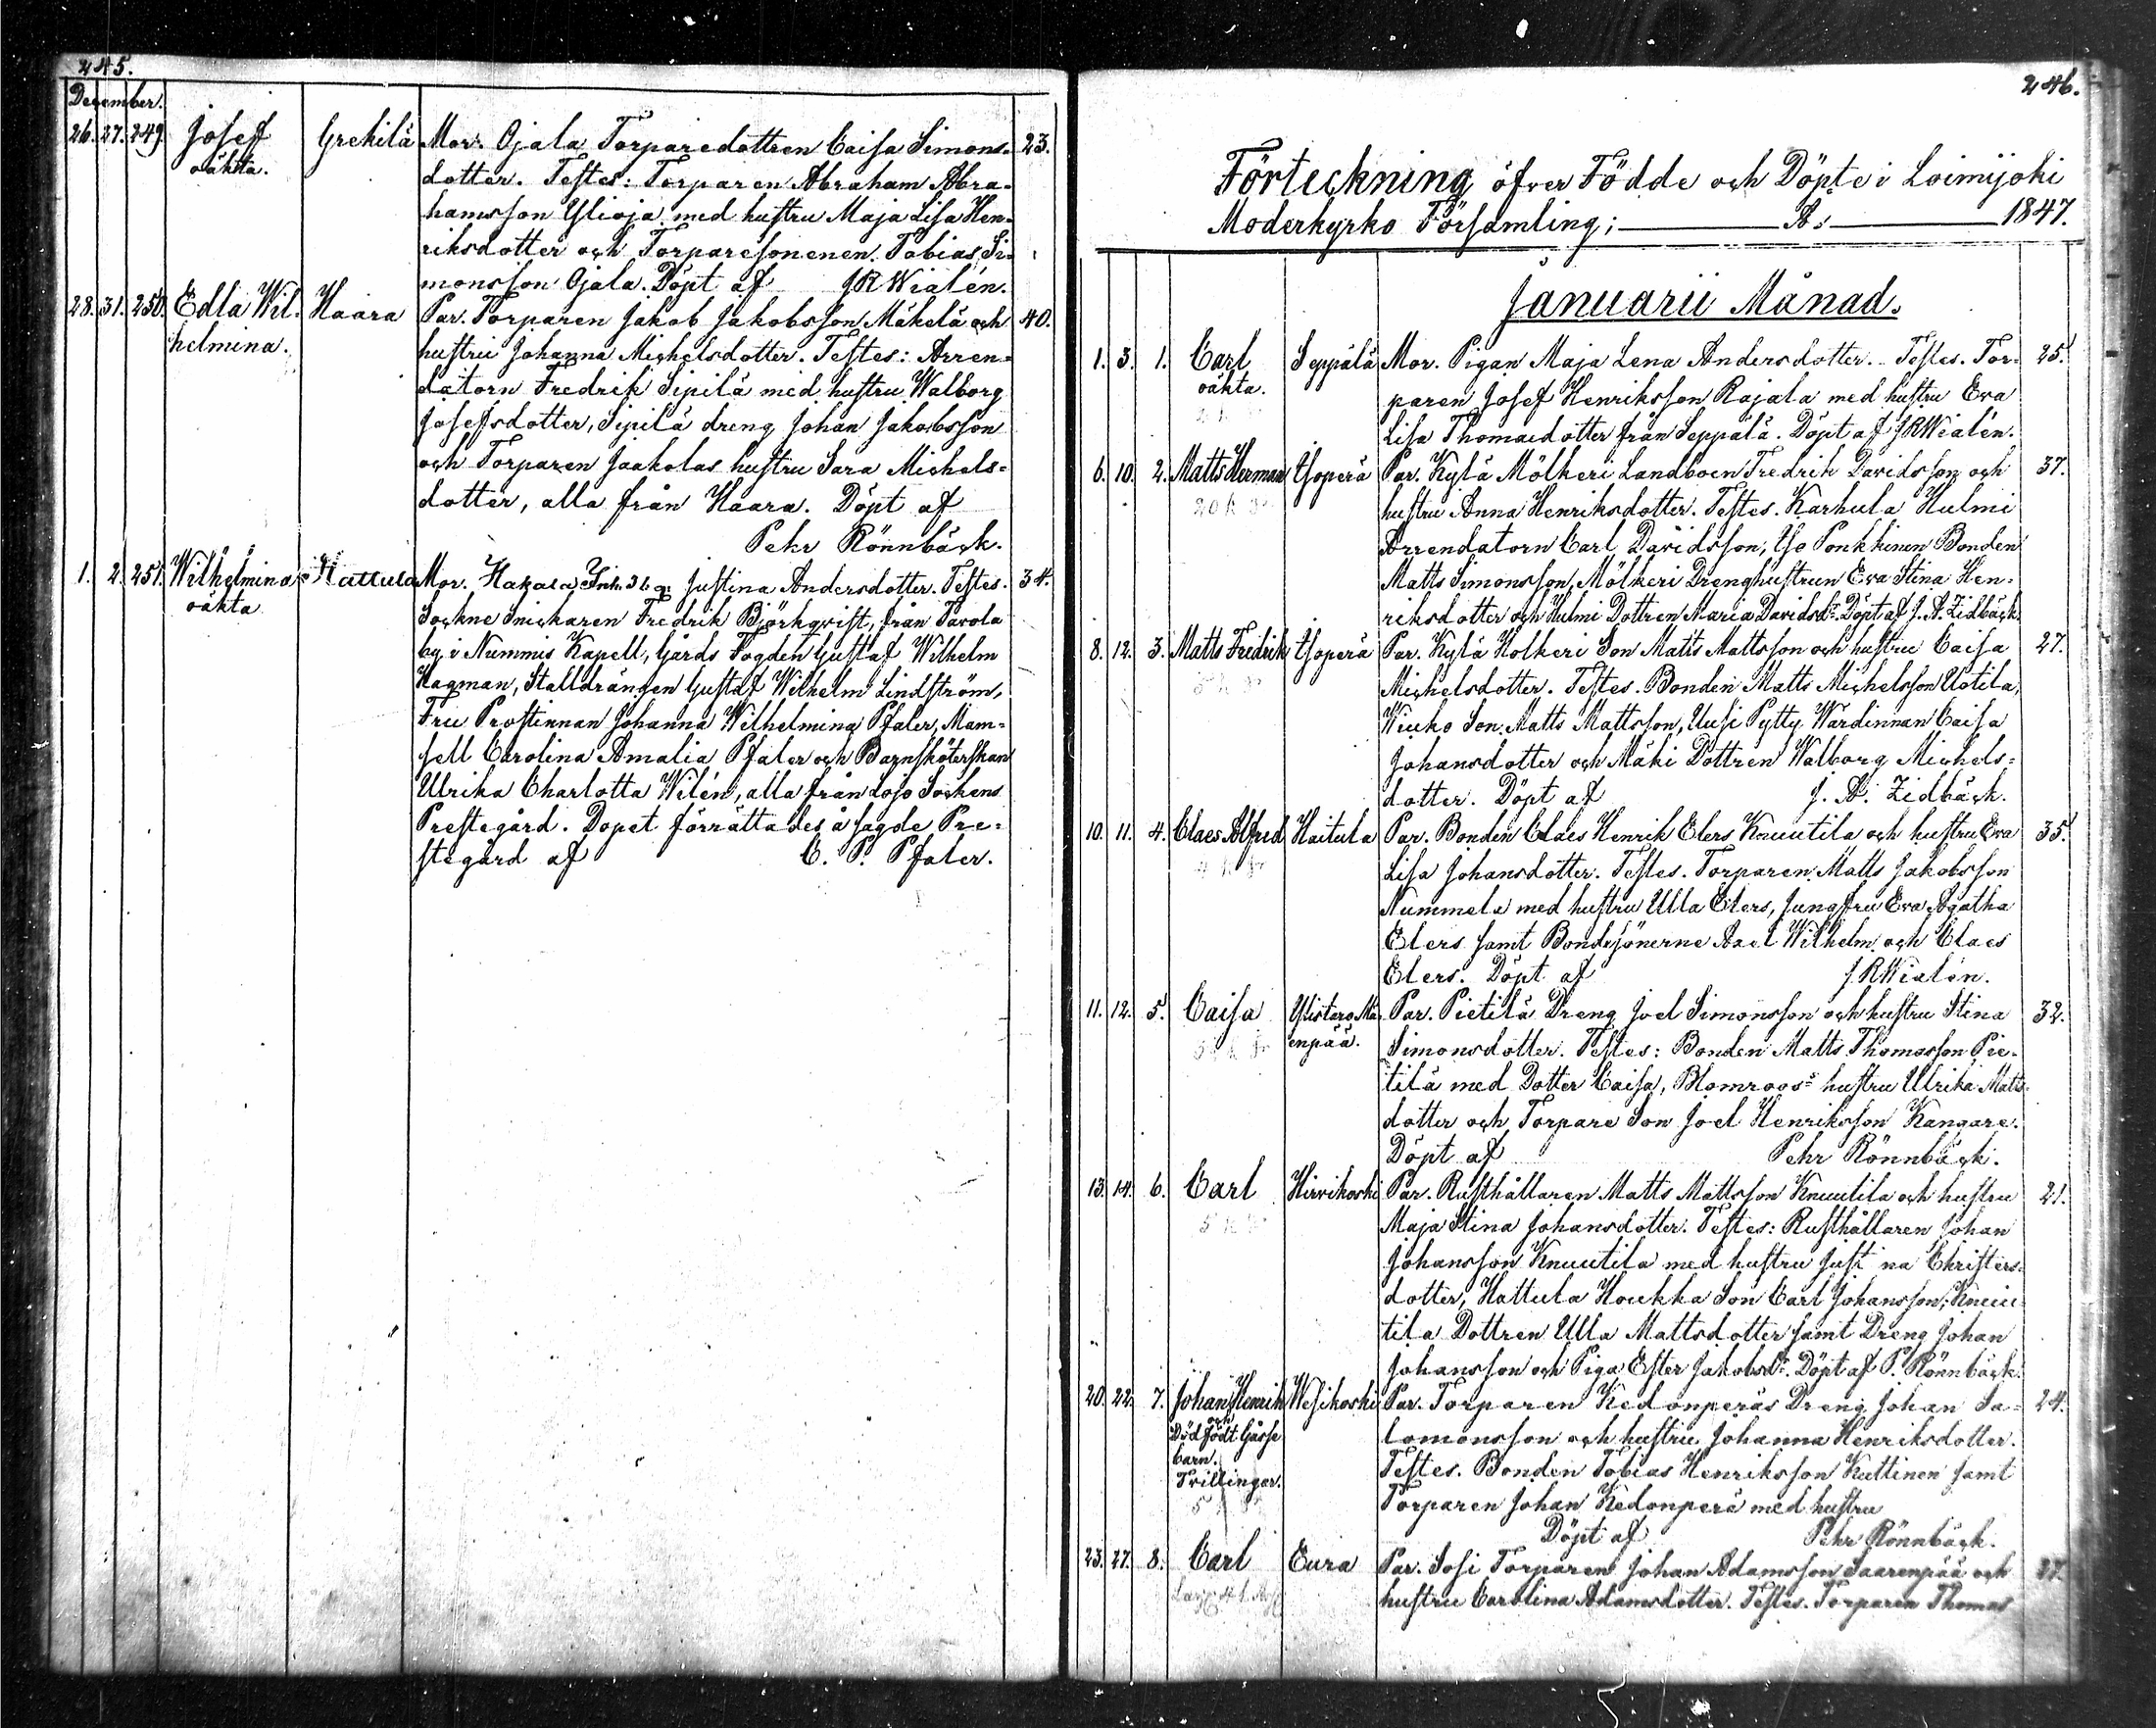 245.
December.
26. 27. 249. Josef Grekilä Mor. Ojala Torparedottren Caisa Simons- 23.
oäkta. dotter. Testes: Torparen Abraham Abra-
hamsson Ylioja med hustru Maja Lisa Hen-
riksdotter och Torparesonenen Tobias Si-
monsson Ojala. Döpt af JRWialén.
28. 31. 250. Edla Wil- Haara Par. Torparen Jakob Jakobsson Mäkelä och 40.
helmina. hustru Johanna Michelsdotter. Testes: Arren-
datorn Fredrik Sipilä med hustru Walborg
Josefsdotter, Sipilä dreng Johan Jakobsson
och Torparen Jaakolas hustru Sara Michels-
dotter, alla från Haara. Döpt af
Pehr Rönnbäck.
1. 2. 251. Wilhelmina Hattula Mor. Hakala Inh. 36 q. Justina Andersdotter. Testes. 34.
oäkta Sockne Snickaren Fredrik Björkqvist, från Tavola
by i Nummis Kapell, Gårds Fogden Gustaf Wilhelm
Hagman, Stalldrängen Gustaf Wilhelm Lindström,
Fru Prostinnan Johanna Wilhelmina Pfaler, Mam-
sell Carolina Amalia Pfaler och Barnsköterskan
Ulrika Charlotta Wilén, alla från Lojo Sockens
Prestegård. Dopet förrättades å sagde Pre-
stegård af C. P. Pfaler.
246.
Förteckning öfver Födde och Döpte i Loimijoki
Moderkyrko Församling; A: 1847.
Januarii Månad.
1. 3. 1. Carl Seppälä Mor. Pigan Maja Lena Andersdotter. Testes. Tor- 25.
oäkta. paren Josef Henriksson Rajala med hustru Eva
Lisa Thomasdotter från Seppälä. Döpt af JRWialén.
6. 10. 2. Matts Herman Ysoperä Par. Kylä Mölkeri Landboen Fredrik Davidsson och 37.
hustru Anna Henriksdotter. Testes. Karhula Hulmi
Arrendatorn Carl Davidsson, Yso Ponkkinen Bonden
Matts Simonsson, Mölkeri Drenghustrun Eva Stina Hen-
riksdotter och Hulmi Dottren Maria Davidsdr. Döpt af J. A. Zidbäck.
8. 12. 3. Matts Fredrik Ysoperä Par. Kylä Holkeri Son Matts Mattsson och hustru Caisa 27.
Michelsdotter. Testes. Bonden Matts Michelsson Uotila,
Wiuko Son Matts Mattsson, Uusi Pytty Wärdinnan Caisa
Johansdotter och Mäki Dottren Walborg Michels-
dotter. Döpt af J. A. Zidbäck.
10. 11. 4. Claes Alfred Haitula Par. Bonden Claes Henrik Elers Knuutila och hustru Eva 35.
Lisa Johansdotter. Testes. Torparen Matts Jakobsson
Nummela med hustru Ulla Elers, Jungfru Eva Agatha
Elers samt Bondesönerne Axel Wilhelm och Claes
Elers. Döpt af JRWialén.
11. 12. 5. Caisa Ylistaro Mä- Par. Pietilä Dreng Joel Simonsson och hustru Stina 32.
enpää. Simonsdotter. Testes: Bonden Matts Thomasson Pie-
tilä med Dotter Caisa, Blomroos's hustru Ulrika Matts-
dotter och Torpare Son Joel Henriksson Kangare.
Döpt af Pehr Rönnbäck.
13. 14. 6. Carl Hirvikoski Par. Rusthållaren Matts Mattsson Knuutila och hustru 21.
Maja Stina Johansdotter. Testes: Rusthållaren Johan
Johansson Knuutila med hustru Justina Christers-
dotter, Hattula Houkka Son Carl Johansson, Knuu-
tila Dottren Ulla Mattsdotter samt Dreng Johan
Johansson och Piga Ester Jakobsdr. Döpt af P. Rönnbäck.
20. 22. 7. Johan Henrik Wesikoski Par. Torparen Kedonperäs Dreng Johan Sa- 24.
och
Död födt Gåsse lomonsson och hustru Johanna Henriksdotter.
barn. Testes. Bonden Tobias Henriksson Kuttinen samt
Tvillingar. Torparen Johan Kedonperä med hustru
Döpt af Pehr Rönnbäck.
23. 27. 8. Carl Eura Par. Sosi Torparen Johan Adamsson Saarenpää och 27.
hustru Carolina Adamsdotter. Testes. Torparen Thomas